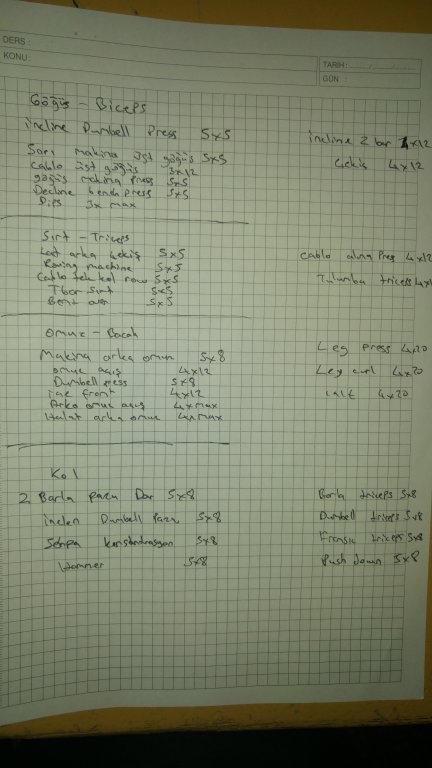 DERS :
KONU :
TARİH :
GÜN :
Göğüs - Biceps
incline Dumbell Press 5x5
incline Z bar 4x12
Sarı makina üst göğüs 5x5
çekiş 4x12
Cablo üst göğüs 3x12
göğüs makina press 5x5
Decline bench press 5x5
Dips 3x max
Sırt - Triceps
Lat arka çekiş 5x5
Cablo alına Pres 4x12
Rowing machine 5x5
Tulumba triceps 4x1
Cablo tek kol row 5x5
Tbar Sırt 5x5
Bent over 5x5
omuz - Bacak
Makina arka omuz 5x8
Leg press 4x20
omuz açış 4x12
Leg curl 4x20
Dumbell press 5x8
front 4x12
calf 4x20
Arka omuz açış 4xmax
Halat arka omuz 4xmax
Kol
2 Barla pazu Dar 5x8
Barla triceps 5x8
inclen Dumbell Pazu 5x8
Dumbell triceps 5x8
konsandrasyon 5x8
Fransız triceps 5x8
Hammer 5x8
Push down 5x8